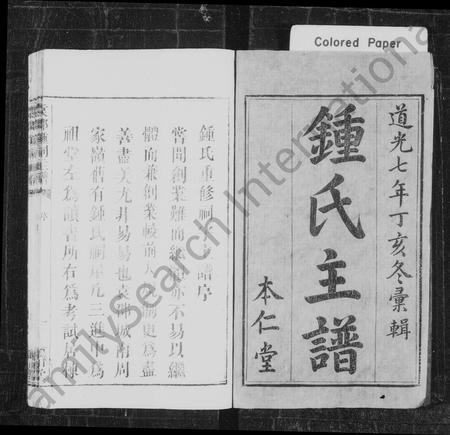 Colored Paper
道光七年丁亥冬彙輯
鍾氏主譜
本仁堂
鍾氏重修祠主譜序
嘗聞創業難而繼亦不易以繼
體而兼創業較前人更為盡
善盡美尤非易易也城南周
家嶺舊有鍾氏祠屋凡三進為
祖堂左為讀書所右為考試
FamilySearch International